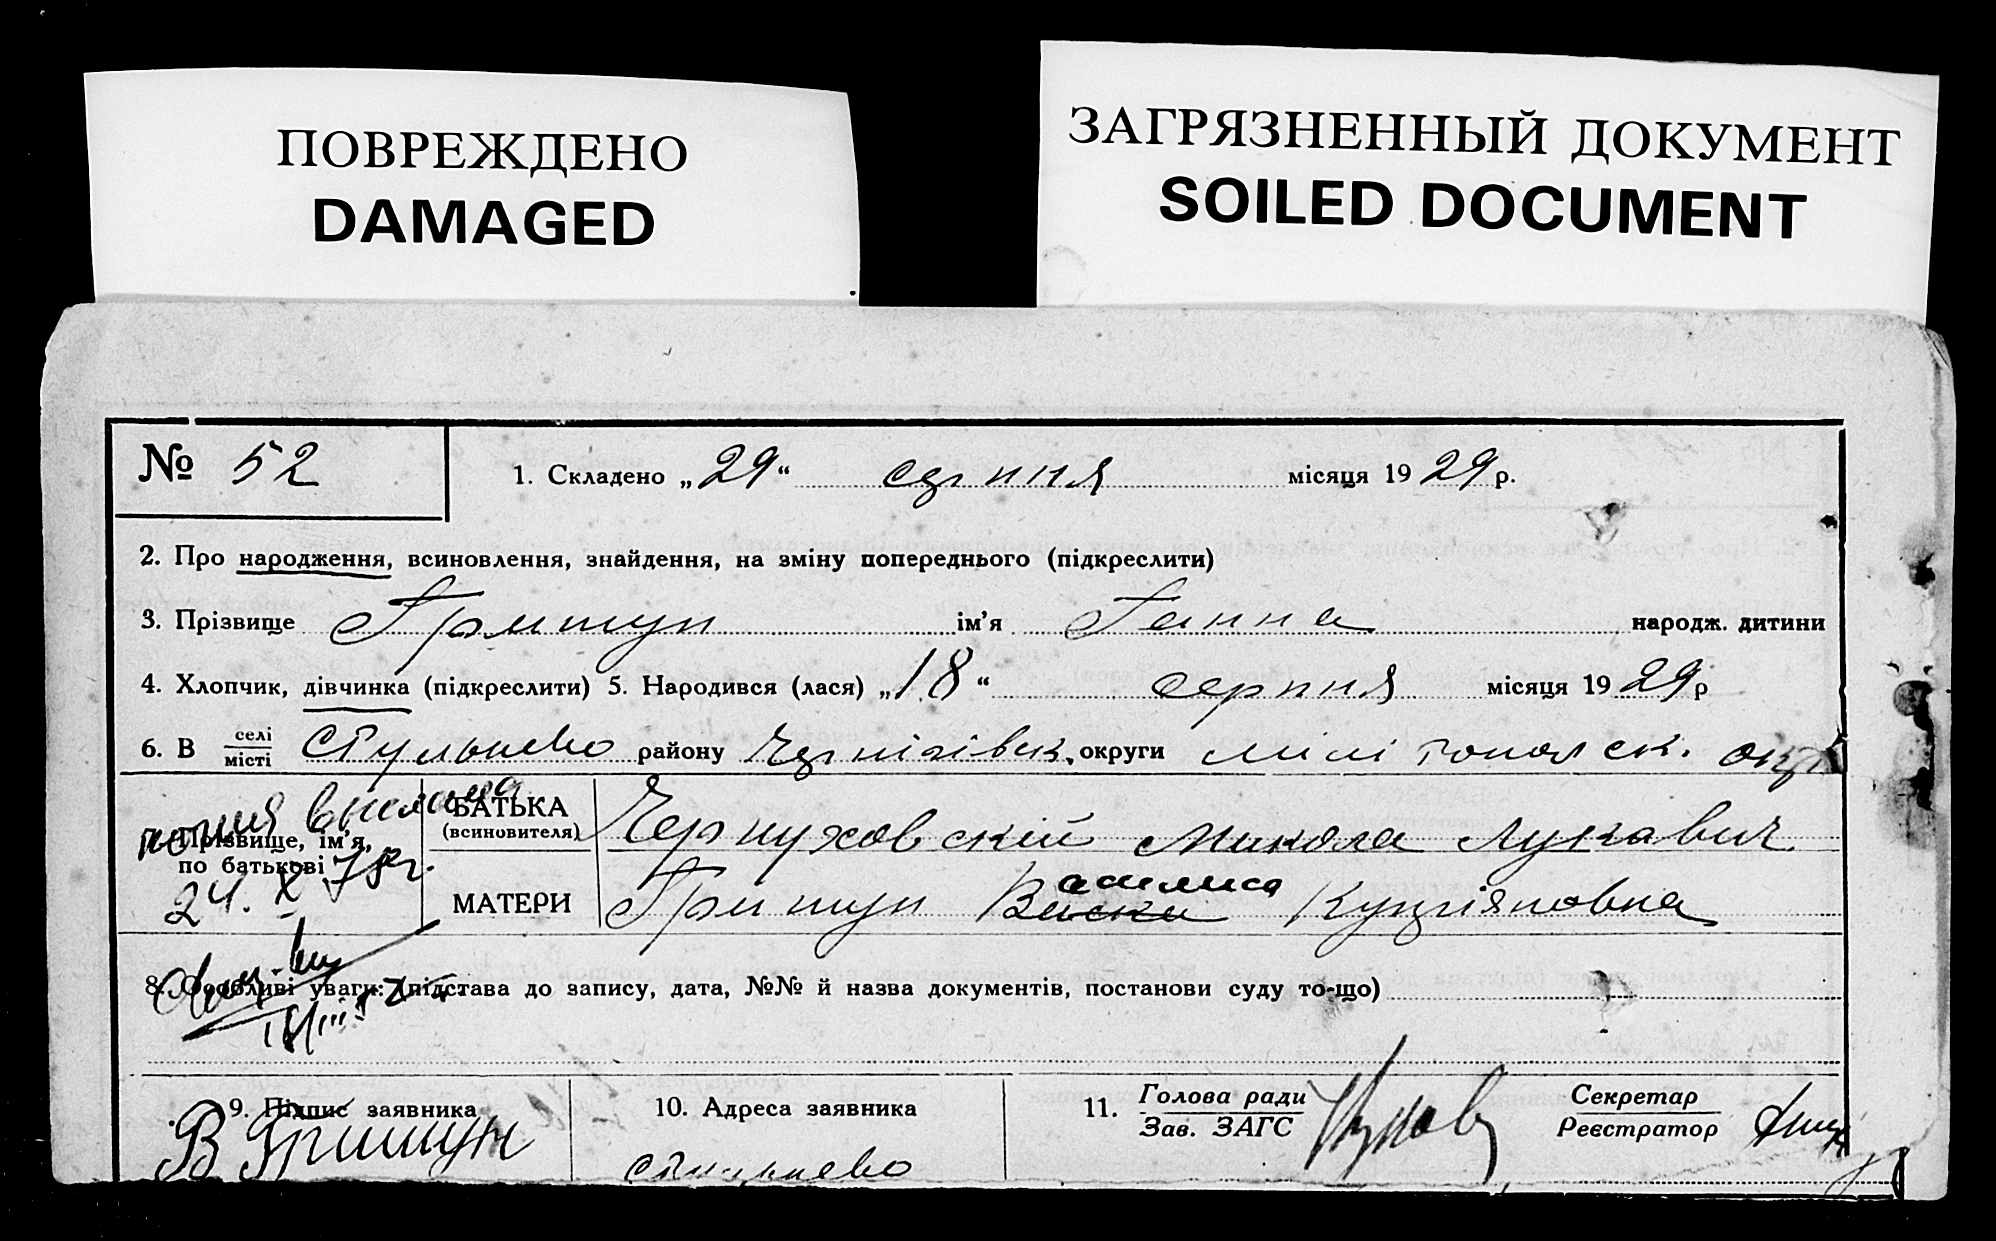 ПОВРЕЖДЕНО
DAMAGED
ЗАГРЯЗНЕННЫЙ ДОКУМЕНТ
SOILED DOCUMENT
№ 52
1. Складено „29“ серпня місяця 1929 р.
2. Про народження, всиновлення, знайдення, на зміну попереднього (підкреслити)
3. Прізвище Гришун ім’я Ганна народж. дитини
4. Хлопчик, дівчинка (підкреслити) 5. Народився (лася) „18“ серпня місяця 1929 р
6. В селі місті Стульнево району Чернігівськ. округи Мілітопольск. окр
Прізвище, ім’я, по батькові
копия выслана
24. X 78г.
БАТЬКА (всиновителя) Чернуховскій Микола Лукавич
МАТЕРИ Гришун Васка асилиса Купріяновна
8. Особливі уваги: (підстава до запису, дата, №№ й назва документів, постанови суду то-що)
9. Підпис заявника
В Гришун
10. Адреса заявника
Стульнево
11. Голова ради Зав. ЗАГС
Секретар Реєстратор